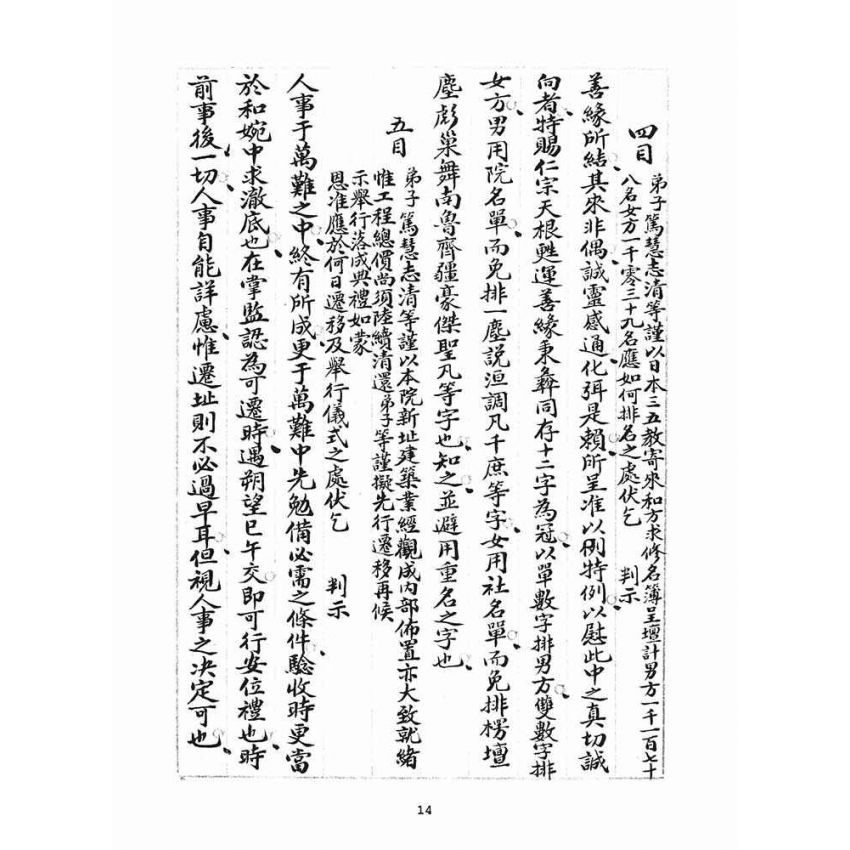 四目
弟子篤慧志清等謹以日本三五教寄來和方求修名簿呈壇計男方一千一百七十
八名女方一千零三十九名應如何排名之處伏乞 判示
善緣所結其來非偶誠靈感通化弭是賴所呈准以例特例以慰此中之真切誠
向者特賜仁宗天根甦運善緣秉彝同存十二字為冠以單數字排男方雙數字排
女方男用院名單而免排一塵說洹調凡千庶等字女用社名單而免排楞壇
塵彭巢舞南魯齊疆豪傑聖凡等字也知之並避用重名之字也
五目
弟子篤慧志清等謹以本院新址建築業經觀成內部佈置亦大致就緒
惟工程總價尚須陸續清還弟子等謹擬先行遷移再候
示舉行落成典禮如蒙
恩准應於何日遷移及舉行儀式之處伏乞 判示
人事于萬難之中終有所成更于萬難中先勉備必需之條件驗收時更當
於和婉中求澈底也在掌監認為可遷時遇朔望巳午交即可行安位禮也時
前事後一切人事自能詳慮惟遷址則不必過早耳但視人事之決定可也
14